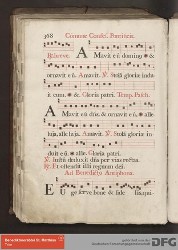 968 Commune Confess. Pontificis.
R. breve. A Mavit eũ dominus *&
ornavit e ũ. Amavit. V. Stolã gloriæ indu
it eum. *&. Gloria patri. Temp. Pasch.
A Mavit eũ dñs, & ornavit e ũ. * alle
luja, alle luja. Amavit. V. Stolã gloriæ in
duit e ũ. * alle. Gloria patri.
V. Justũ deduxit dñs per vias rectas.
R. Et ostendit illi regnum dei.
Ad Benedictus Antiphona.
E Uge serve bone & fide lis, qui
DFG